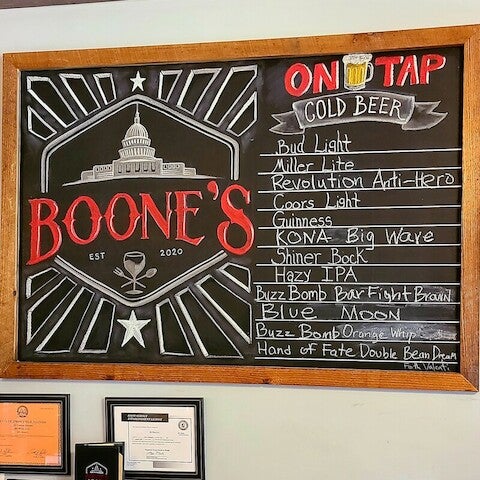 BOONE'S
EST 2020
ON TAP
COLD BEER
Bud Light
Miller Lite
Revolution Anti-Hero
Coors Light
Guinness
KONA Big Wave
Shiner Bock
Hazy IPA
Buzz Bomb BarFight Brown
BLUE MOON
Buzz Bomb Orange Whip
Hand of Fate Double Bean Dream
Faith Valenti